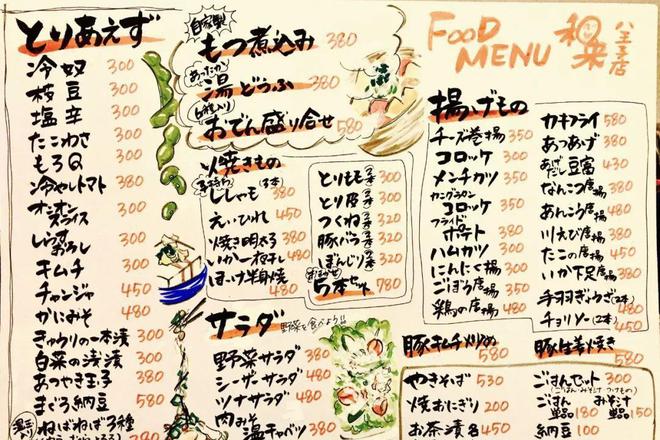 とりあえず
冷奴 300
枝豆 300
塩辛 300
たこわさ 300
もろQ 300
冷やしトマト 380
オニオンスライス 300
しらすおろし 300
キムチ 300
チャンジャ 450
かにみそ 480
きゅうりの一本漬 300
白菜の浅漬 300
あつやき玉子 380
まぐろ納豆 580
ねばねば3種
自家製
もつ煮込み 380
あったか
湯どうふ 380
おでん盛り合せ 580
焼きもの
ししゃも(3本) 380
えいひれ 450
焼き明太子 380
いか一夜干し 480
ほっけ半身焼 480
とりもも 2本 300
とり皮 2本 300
つくね 2本 320
豚バラ 2本 320
ぼんじり 2本 320
おまかせ
5本セット 780
サラダ 野菜を食べよう!!
野菜サラダ 380
シーザーサラダ 480
ツナサラダ 480
肉みそ
温キャベツ 380
FOOD
MENU
和来
八王子店
揚げもの
チーズ巻揚 350
コロッケ 300
メンチカツ 350
カングラタン
コロッケ 350
フライド
ポテト 380
ハムカツ 300
にんにく揚 300
ごぼう唐揚 350
鶏の唐揚 480
カキフライ 580
あつあげ 380
あげだし豆富 430
なんこつ唐揚 380
あんこう唐揚 480
川えび唐揚 380
たこの唐揚 450
いか下足唐揚 380
手羽ぎょうざ(2本) 480
チョリソー(2本) 450
豚キムチ炒め 580
豚生姜焼き 580
やきそば 530
焼おにぎり 200
お茶漬各 450
ごはんセット 300
(ごはん・みそ汁・つけもの)
ごはん単品 180 みそ汁単品 150
納豆 100